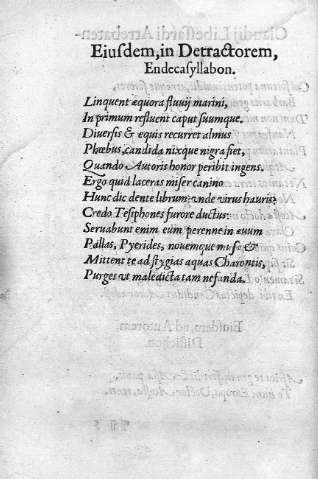 Eiusdem, in Detractorem,
Endecasyllabon.
Linquent æquora fluuij marini,
In primum refluent caput suumque.
Diuersis & equis recurret almus
Phœbus, candida nixque nigra fiet,
Quando Autoris honor peribit ingens.
Ergo quid laceras miser canino
Hunc dic dente librum: vnde virus hauris?
Credo Tesiphones furore ductus:
Seruabunt enim eum perenne in æuum
Pallas, Pyerides, nouemque musæ &
Mittent te ad stygias aquas Charontis,
Purges vt maledicta tam nefanda.